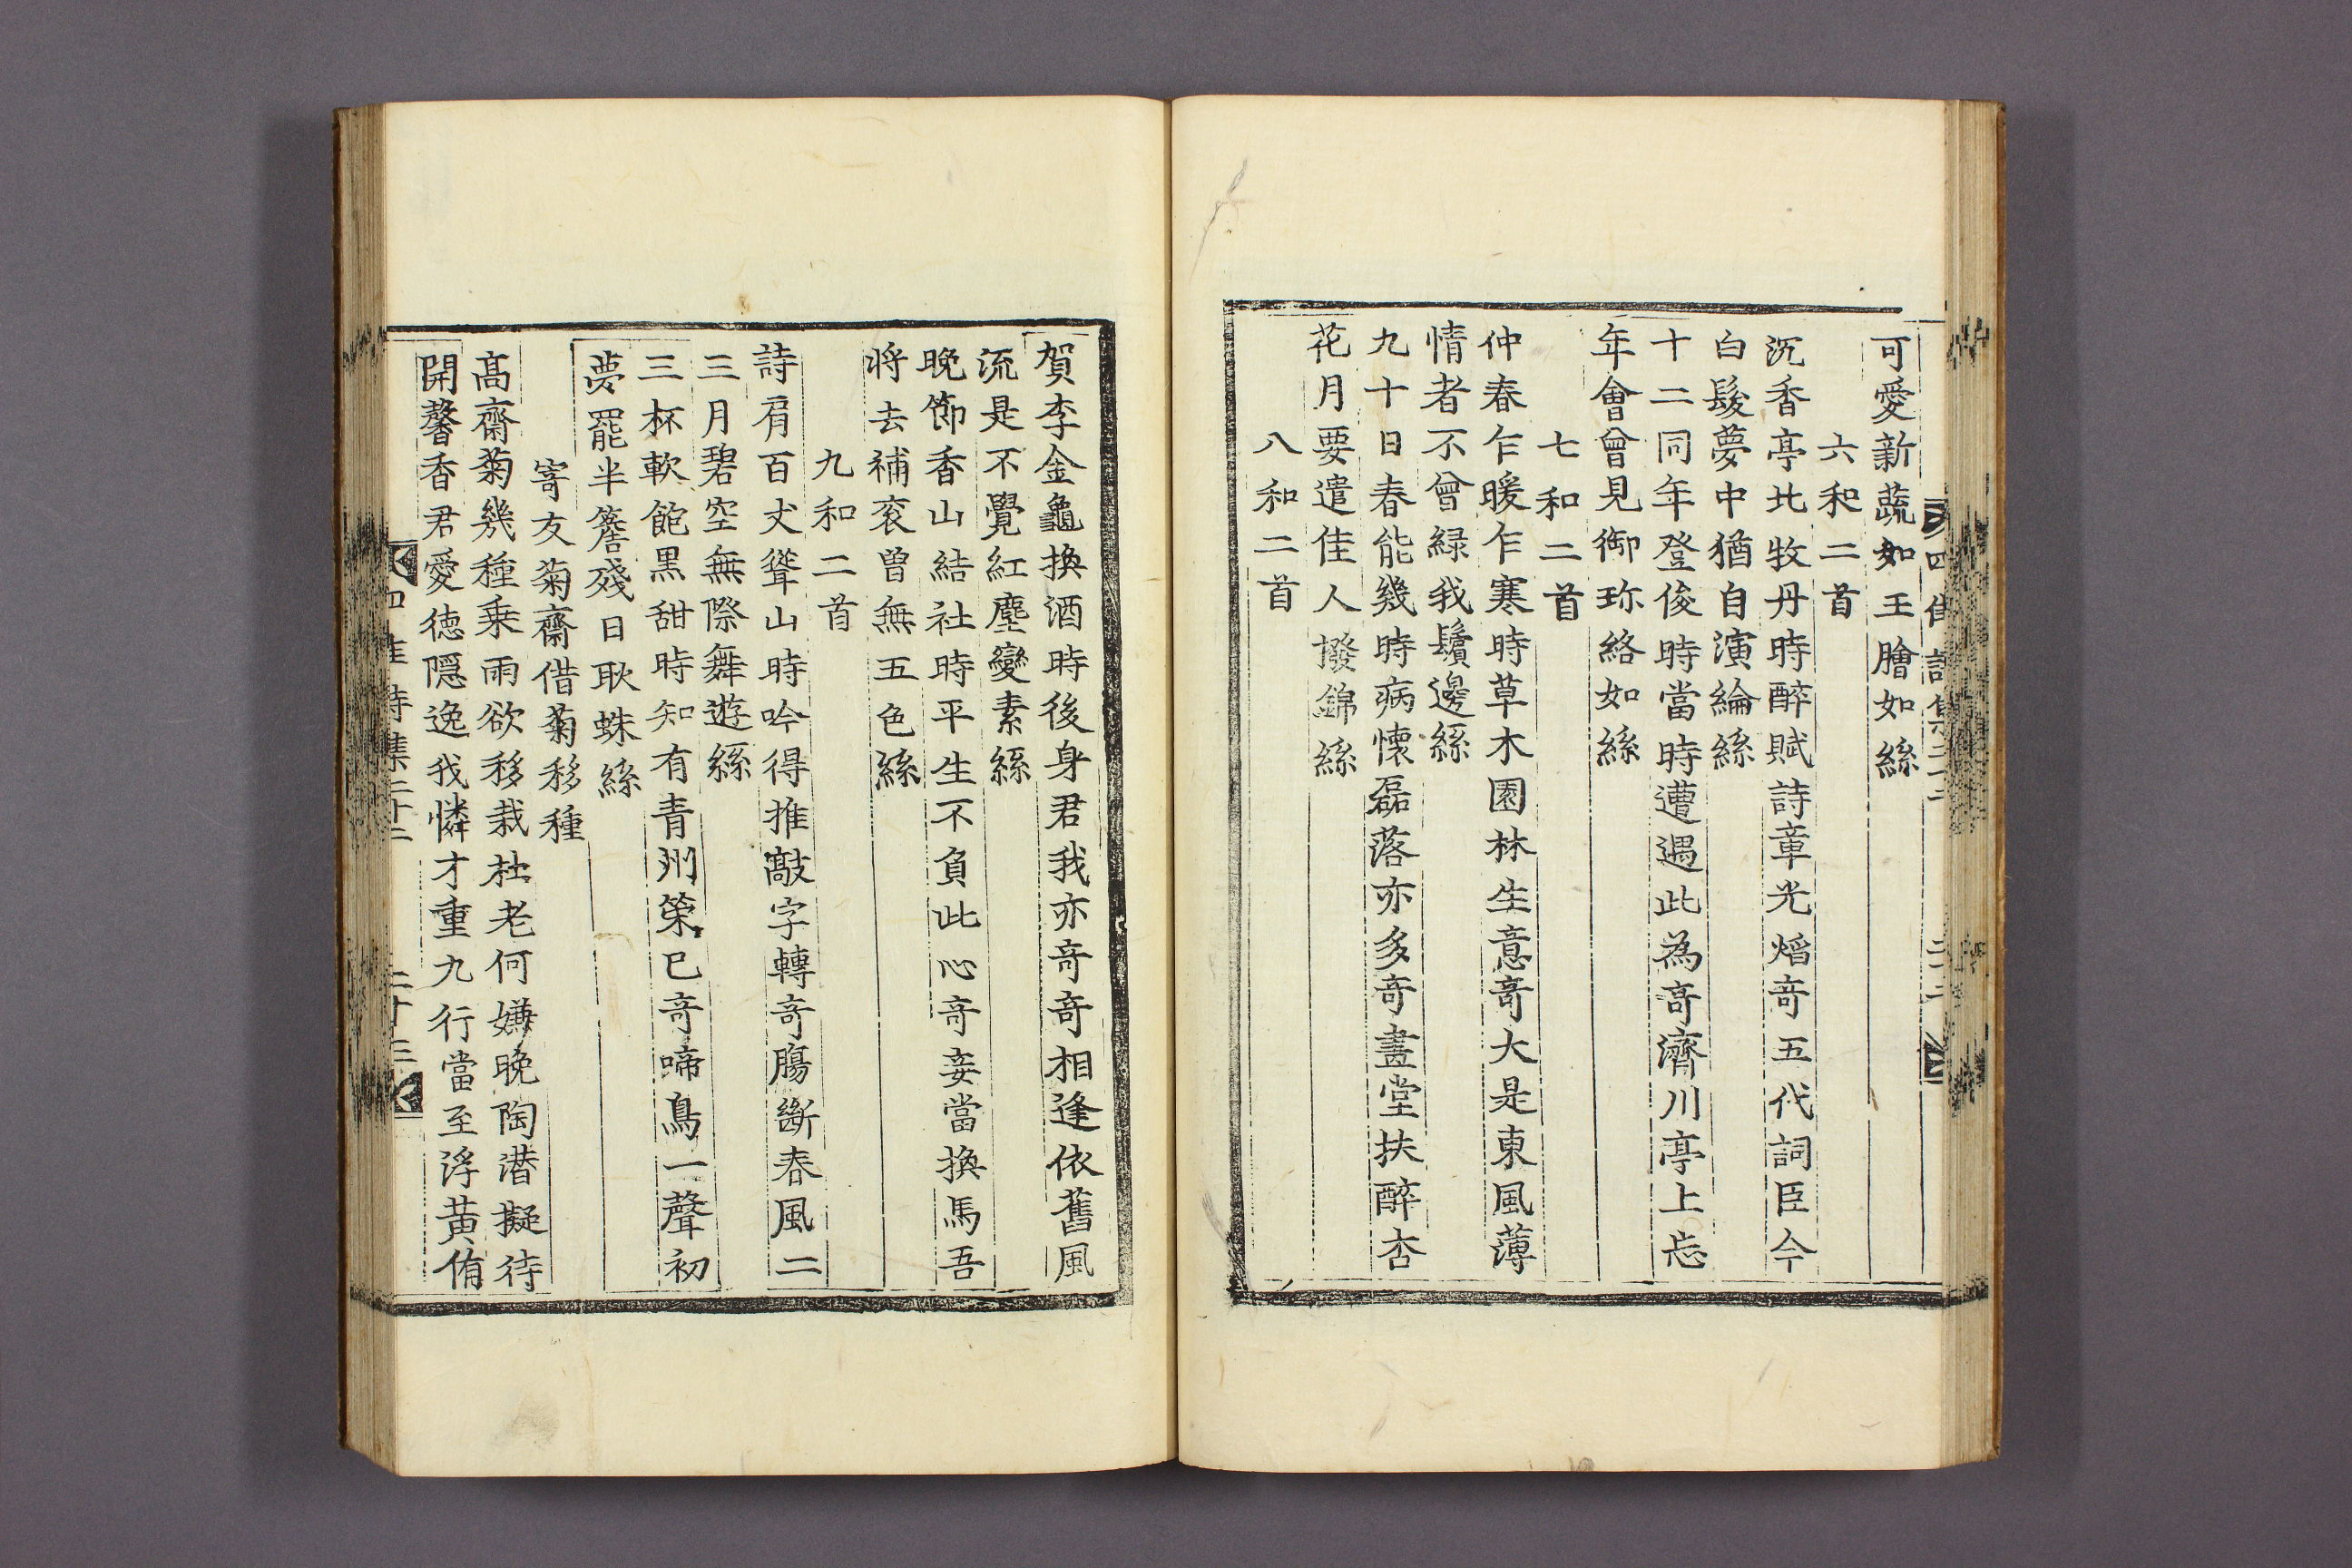 可愛新蔬如玉膾如絲
六和二首
沉香亭北牧丹時醉賦詩章光熖竒五代詞臣今
白髮夢中猶自演綸絲
十二同年登俊時當時遭遇此為竒濟川亭上忘
年會曾見御珎絡如絲
七和二首
仲春乍暖乍寒時草木園林生意竒大是東風薄
情者不曾緑我鬚邊絲
九十日春能幾時病懷磊落亦多竒畫堂扶醉杏
花月要遣佳人撥錦絲
八和二首
賀李金龜換酒時後身君我亦竒竒相逢依舊風
流是不覺紅塵變素絲
晚節香山結社時平生不負此心竒妾當換馬吾
将去補衮曾無五色絲
九和二首
詩肩百丈聳山時吟得推敲字轉竒膓斷春風二
三月碧空無際舞遊絲
三杯軟飽黑甜時知有青州策已竒啼鳥一聲初
夢罷半簷殘日耿蛛絲
寄友菊齋借菊移種
髙齋菊幾種乗雨欲移栽杜老何嫌晚陶潜擬待
開馨香君愛徳隠逸我憐才重九行當至浮黄侑
四佳詩集二十二 二十三